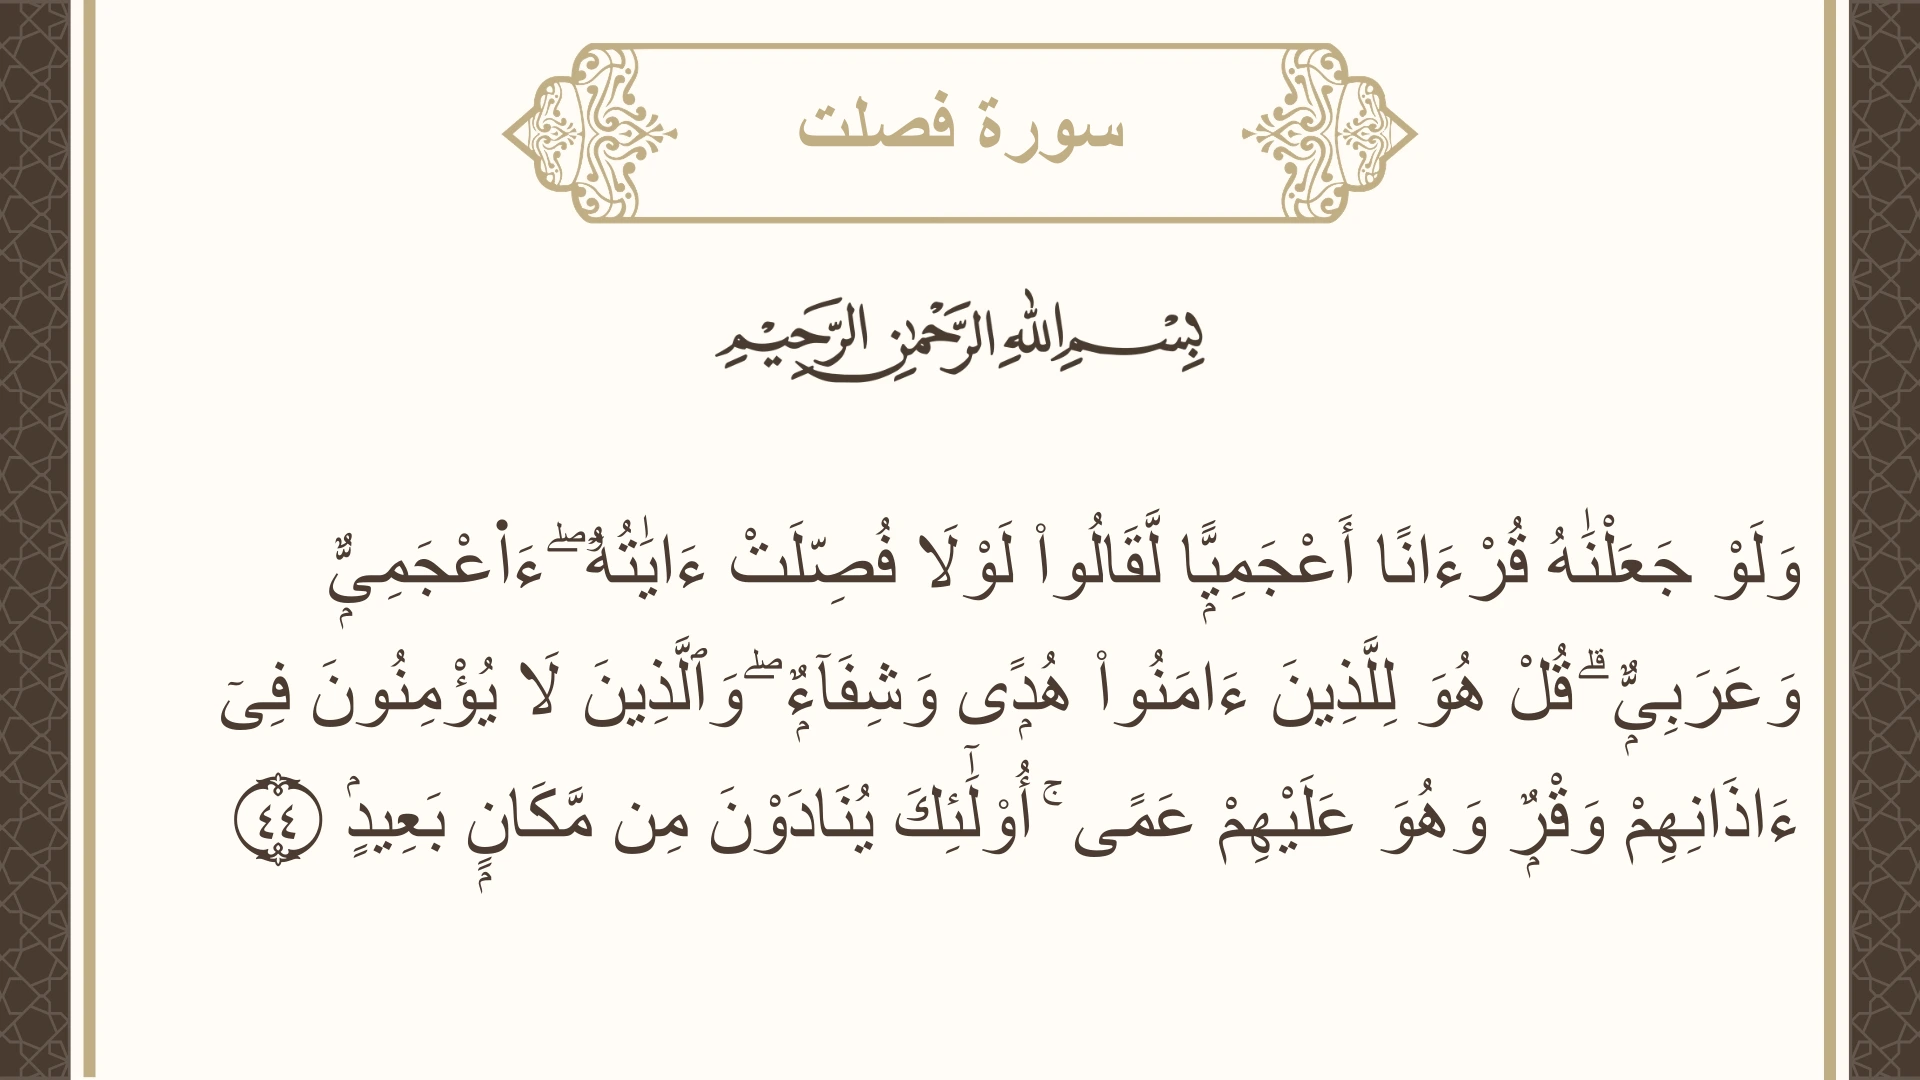 سورة فصلت
بِسْمِ اللهِ الرَّحْمٰنِ الرَّحِيْمِ
وَلَوْ جَعَلْنَـٰهُ قُرْءَانًا أَعْجَمِيًّۭا لَّقَالُوا۟ لَوْلَا فُصِّلَتْ ءَايَـٰتُهُۥٓ ۖ ءَا۬عْجَمِىٌّۭ
وَعَرَبِىٌّۭ ۗ قُلْ هُوَ لِلَّذِينَ ءَامَنُوا۟ هُدًۭى وَشِفَآءٌۭ ۖ وَٱلَّذِينَ لَا يُؤْمِنُونَ فِىٓ
ءَاذَانِهِمْ وَقْرٌۭ وَهُوَ عَلَيْهِمْ عَمًى ۚ أُو۟لَـٰٓئِكَ يُنَادَوْنَ مِن مَّكَانٍۭ بَعِيدٍۢ ٤٤